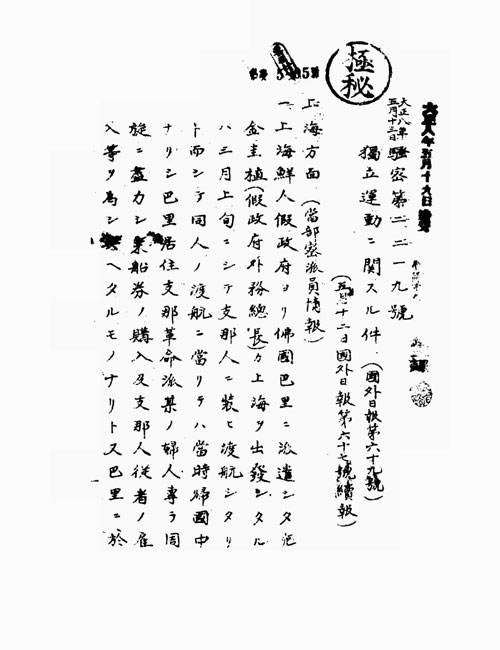 極秘
大正八年
五月十三日
騷密第二二一九號
獨立運動ニ関スル件 (國外日報第六十九號)
(五月十二日國外日報第六十七號續報)
上海方面 (當部密派員情報)
一、上海鮮人假政府ヨリ佛國巴里ニ派遣シタル
金圭植(假政府外務總長)カ上海ヲ出發シタル
ハ三月上旬ニシテ支那人ニ装ヒ渡航シタリ
ト而シテ同人ノ渡航ニ當リテハ當時婦國中
ナリシ巴里居住支那革命派某ノ婦人專ラ周
旋ニ盡力シ乘船券ノ購入及支那人從者ノ雇
入等ヲ為シ ヘタルモノナリト又巴里ニ於